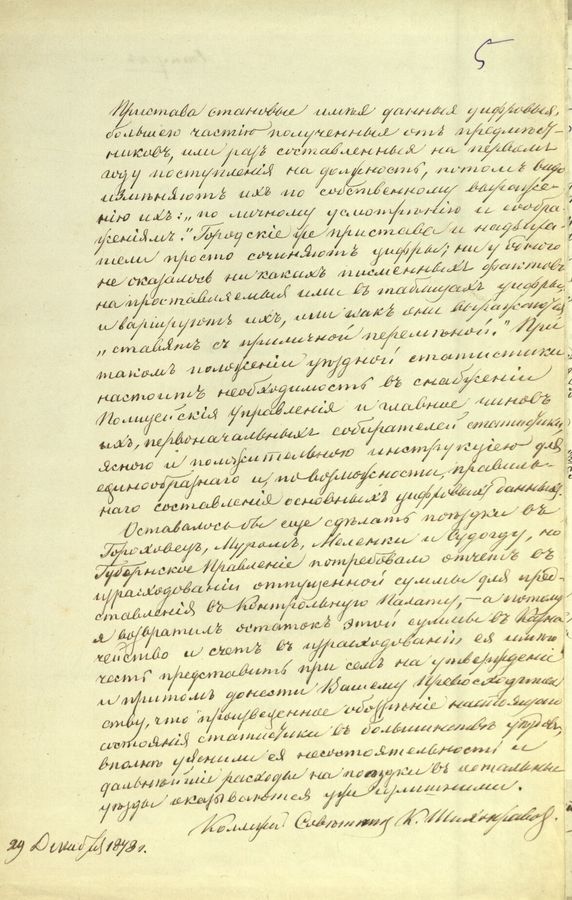 5
Пристава становые имѣя данныя цифровыя,
большею частію полученныя отъ предмѣст-
никовъ, или разъ составленныя на первомъ
году поступленія на должность, потомъ видо
измѣняютъ ихъ по собственному выраже-
нію ихъ: „по личному усмотрѣнію и сообра-
женіямъ." Городскіе же пристава и надзира-
тели просто сочиняютъ цифры; ни у одного
не оказалось никакихъ писменныхъ фактовъ
на проставляемыя ими въ таблицахъ цифры,
и варіируютъ ихъ, или какъ они выражаются
„ставятъ съ приличной перемѣной." При
такомъ положеніи уѣздной статистики
настоитъ необходимость въ снабженіи
Полицейскія Управленія и главное чиновъ
ихъ, первоначальныхъ собирателей статистики,
ясною и положительною инструкціею для
единообразнаго и, по возможности, правиль-
наго составленія основныхъ цифровыхъ данныхъ.
Оставалось бы еще сдѣлать поѣздки въ
Гороховецъ, Муромъ, Меленки и Судогду, но
Губернское Правленіе потребовало отчетъ въ
израсходованіи отпущенной суммы для пред-
ставленія въ Контрольную Палату, – а потому
я возвратилъ остатокъ этой суммы въ Казна
чейство и счетъ въ израсходованіи ея имѣю
честь представить при семъ на утвержденіе
и притомъ донести Вашему Превосходитель
ству, что произведенное обозрѣніе настоящаго
состоянія статистики въ большинствѣ уѣздовъ,
вполнѣ уяснили ея несостоятельность и
дальнѣйшіе расходы на поѣздки въ остальные
уѣзды оказываются уже излишними.
Коллежскій Совѣтникъ К.
29 Декабря 1873 г.